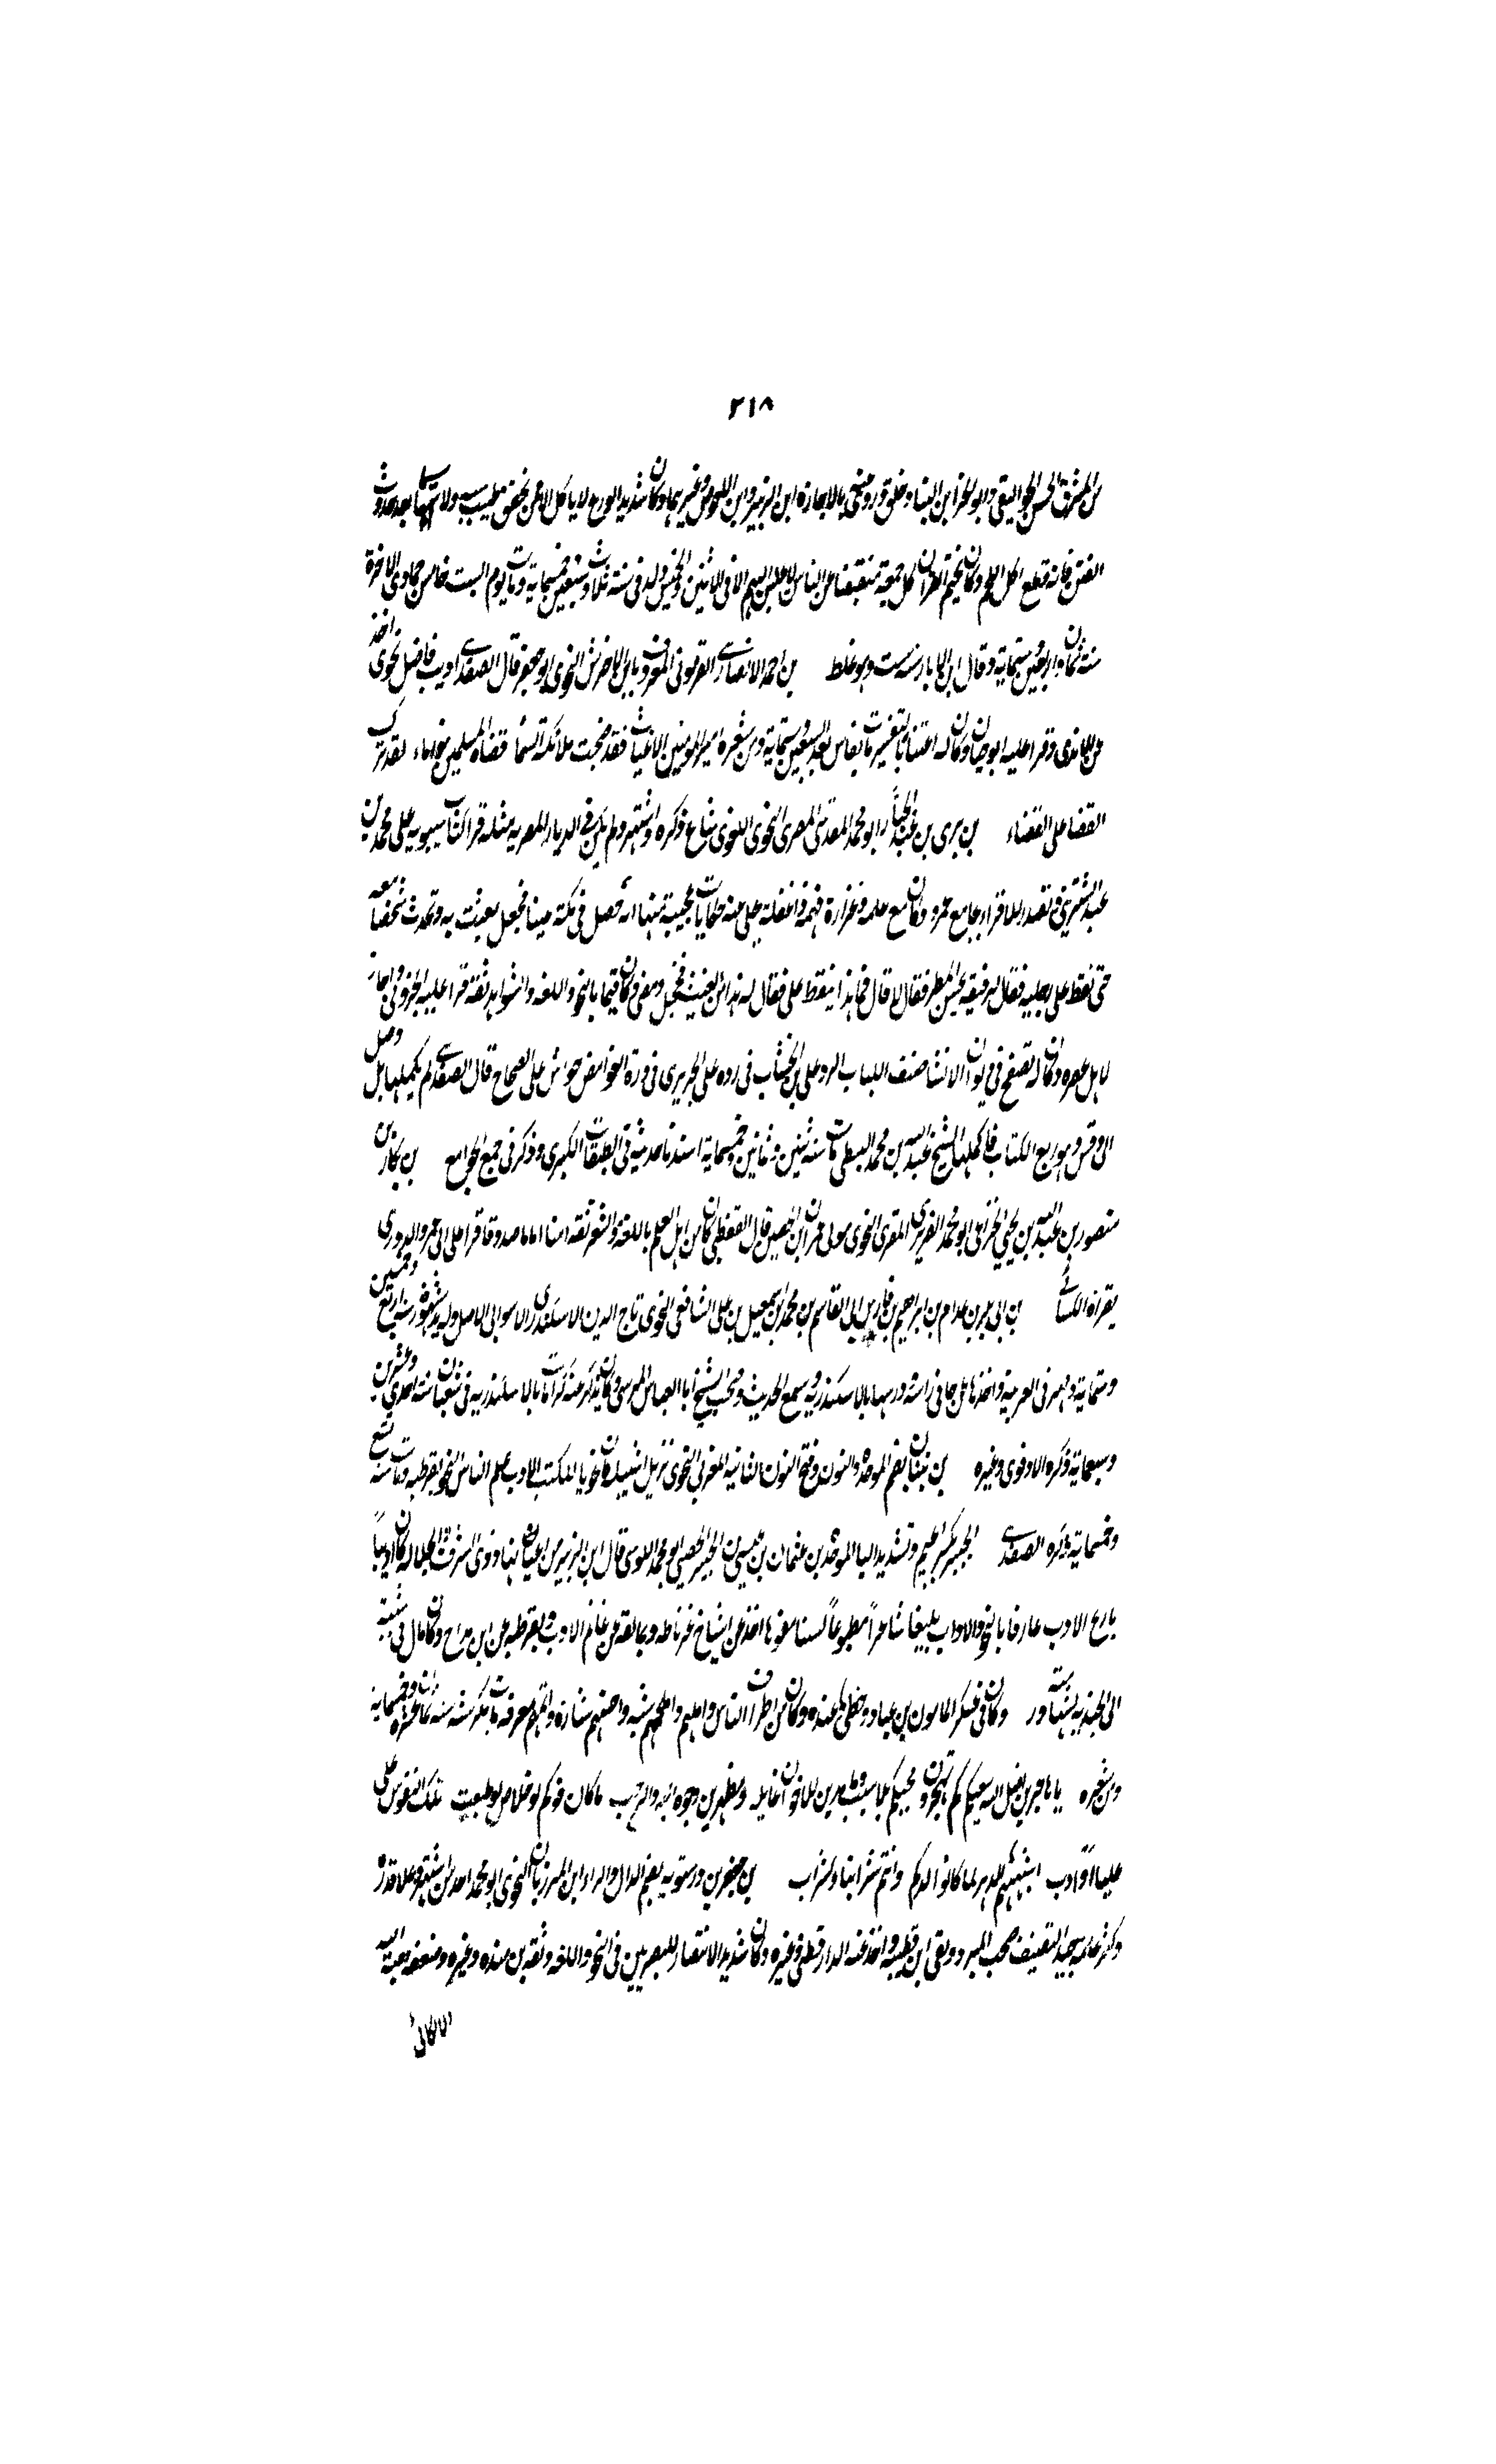 ٢١٨
من المشرق الحسن الجواليقى وابو العز ابن البنا وخلق وروى عنه بالاجازة ابن الزبير وابن اللحوض وغيرهما وكان شديد الورع لا ياكل الا ممن تحقق طيب كسبه ولا سيما بعد حدوث
الفتن فانه قطع اكل اللحم وكان يختم القرآن كل جمعة منقبضا عن الناس لا يجلس اليهم الا فى الاثنين والخميس ولد فى سنة ثلاث وسبعين وخمسماية ومات يوم السبت خامس جمادى الاخرة
سنة ثمان واربعين وستماية وقال ابن الابار سنة ست وهو غلط بن احمد الانصارى القرمونى المعروف بابن الاخرش النحوى ابو جعفر قال الصفدى اديب فاضل نحوى اخذ
عن الابذى وقرا عليه ابو حيان وكان له اعتناء بالتفسير مات بفاس بعد السبعين وستماية ومن شعره امير المومنين الاغياث فقد ضجت ملائكة السما قضاة المسلمين بنو اماء لقد ترك
القضا على القضاء بن برى بن عبد الجبار ابو محمد المقدسى المصرى النحوى اللغوى شاع ذكره واشتهر ولم يكن فى الديار المصرية مثله قرا كتاب سيبويه على محمد بن
عبد الملك الشنترينى وتصدر للاقراء بجامع عمرو وكان مع علمه وغزارة فهمه ذا غفلة يحكى عنه حكايات عجيبة منها انه حصل فى كمه عنبا فجعل يعبث به ويحدث شخصا معه
حتى نقط على رجليه فقال لرفيقه تحس المطر فقال لا قال فما هذا ينقط على فقال له هذا من العنب فخجل ومضى وكان قيما بالنحو واللغة والشواهد ثقة قرا عليه الجزولى واجاز
لاهل عصره وكان له تصفح فى ديوان الانشا صنف اللباب الرد على ابن الخشاب فى رده على الحريرى فى درة الغواص حواش على الصحاح قال الصفدى لم يكملها بل وصل
الى وقش وهو ربع الكتاب فاكملها الشيخ عبد الله بن محمد البسطى مات سنة ثنتين وثمانين وخمسماية اسندنا حديثه فى الطبقات الكبرى وذكر فى جمع الجوامع بن بكار بن
منصور بن عبد الله بن يحيى الخزاعى ابو محمد الضرير المقرى النحوى مولى عمران ابن الحصين قال القفطى كان من اهل العلم باللغة والشعر ثقة امنا اماما صدوقا قرا على ابى عمر والدورى
بقراة الكسائى بن ابى بكر بن عرام بن ابراهيم بن فارس بن ابى القاسم بن محمد بن اسمعيل بن على الشافعى النحوى تاج الدين الاسكندرى الاسوانى الاصل ولد بدمنهور سنة اربع وخمسين
وستماية ومهر فى العربية واخذها عن حافى راسه ودرسها بالاسكندرية وسمع الحديث وصحب الشيخ ابا العباس المرسى وكان يذكر عنه كرامات بالاسكندرية فى شعبان سنة احدى وعشرين
وسبعماية ذكره الادفوى وغيره بن بنان بضم الموحدة والنون وفتح النون الثانية المغربى النحوى نزيل اشبيلة كان نحويا للكتب الادب علم الناس النحو بقرطبة ومات سنة تسع
وخمسماية ذكره الصفدى الجبير بكسر الجيم وتشديد اليا الموحدة بن عثمان بن عيسى بن الجبير الحصبى ابو محمد اللوسى قال ابن الزبير من اعيان بلدنا وذوى الشرف والجلالة كان اديبا
بارع الادب عارفا بالنحو والاداب بليغا شاعرا مطبوعا لسنا مفوها اخذ عن اشياخ غرناطة وبمالقة عن غانم الادب وبقرطبة عن ابن سراج وكان مال فى شبيبته
الى الجندية لشهامته وكان فى عسكر المامون بن عباد وحظى عنده وكان من اظرف الناس واملحهم شيبة واحسنهم شارة واتمهم معرفة مات بلوشة سنة ثمان عشرة وخمسماية
ومن شعره يا هاجرين اضل الله سعيكم كم تهجرون محبيكم بلا سبب ويا مسرين للاخوان غائلة ومظهرين وجوه البر والرحب ما كان ضركم لو خلاص لو طبعت تلك النفوس على
علياء او ادب اشبهتم الدهر لما كان والدكم وانتم شر ابناء لشر اب بن جعفر بن درستويه بضم الدال والراء ابن المرزبان النحوى ابو محمد احد من اشتهر وعلا قدره
وكثر علمه جيد التصنيف صحب المبرد ولقى ابن قتيبة واخذ عنه الدارقطنى وغيره وكان شديد الانتصار للبصريين فى النحو واللغة وثقه ابن منده وغيره وضعفه هبة الله
اللالكائى